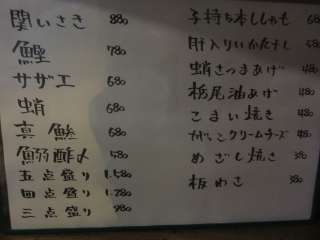 関いさき 880
鰹 780
サザエ 680
蛸 680
真鯵 680
鰯酢〆 580
五点盛り 1.580
四点盛り 1.280
三点盛り 980
子持ち本ししゃも 680
肝入りいかだし 480
蛸さつまあげ 480
栃尾油あげ 480
こまい焼き 480
クリームチーズ 480
めざし焼き 380
板わさ 380